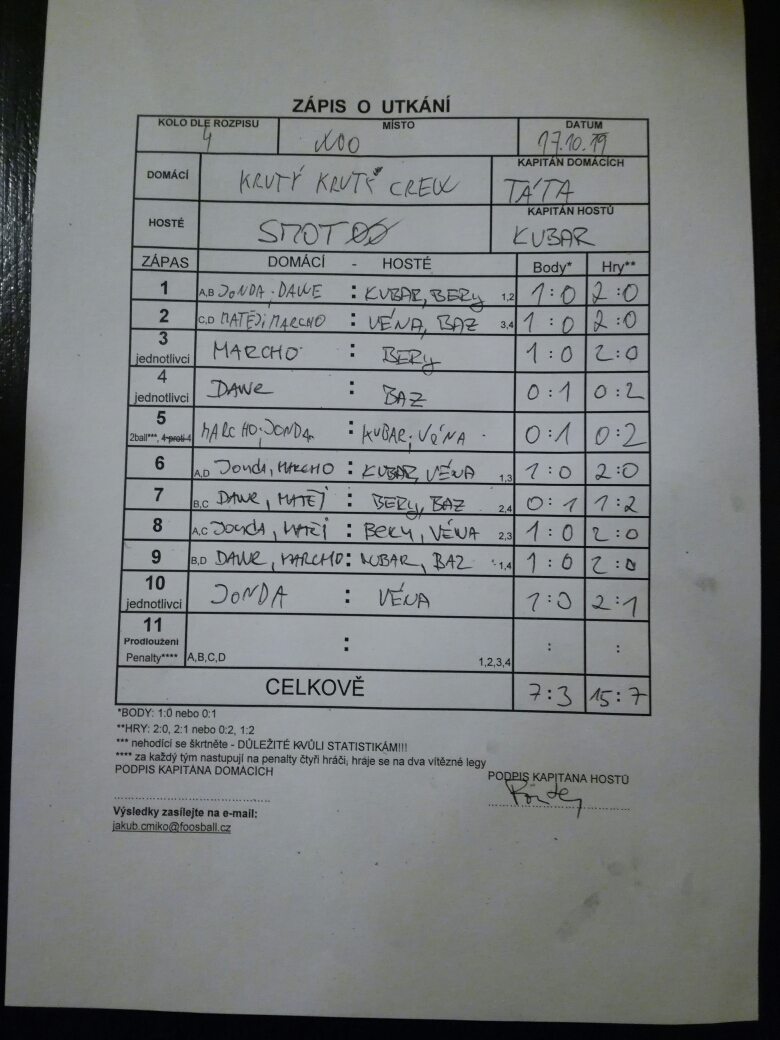 ZÁPIS O UTKÁNÍ
KOLO DLE ROZPISU MÍSTO DATUM
4 17.10.19
DOMÁCÍ KRUTÝ KRUTÝ CREW KAPITÁN DOMÁCÍCH TÁTA
HOSTÉ KAPITÁN HOSTŮ KUBAR
ZÁPAS DOMÁCÍ - HOSTÉ Body* Hry**
1 A,B JONDA, DAWE : KUBAR, BERY 1,2 1:0 2:0
2 C,D MATĚJ, MARCHO : VÉNA, BAZ 3,4 1:0 2:0
3 jednotlivci MARCHO : BERY 1:0 2:0
4 jednotlivci DAWE : BAZ 0:1 0:2
5 2ball***, 4 proti 4 MARCHO; JONDA : KUBAR; VÉNA 0:1 0:2
6 A,D JONDA, MARCHO : KUBAR, VÉNA 1,3 1:0 2:0
7 B,C DAWE, MATĚJ : BERY, BAZ 2,4 0:1 1:2
8 A,C JONDA, MATĚJ : BERY, VÉNA 2,3 1:0 2:0
9 B,D DAWE, MARCHO : KUBAR, BAZ 1,4 1:0 2:0
10 jednotlivci JONDA : VÉNA 1:0 2:1
11 Prodloužení Penalty**** A,B,C,D : 1,2,3,4 : :
CELKOVĚ 7:3 15:7
*BODY: 1:0 nebo 0:1
**HRY: 2:0, 2:1 nebo 0:2, 1:2
*** nehodící se škrtněte - DŮLEŽITÉ KVŮLI STATISTIKÁM!!!
**** za každý tým nastupují na penalty čtyři hráči, hraje se na dva vítězné legy
PODPIS KAPITÁNA DOMÁCÍCH PODPIS KAPITÁNA HOSTŮ
Výsledky zasílejte na e-mail:
jakub.cmiko@foosball.cz